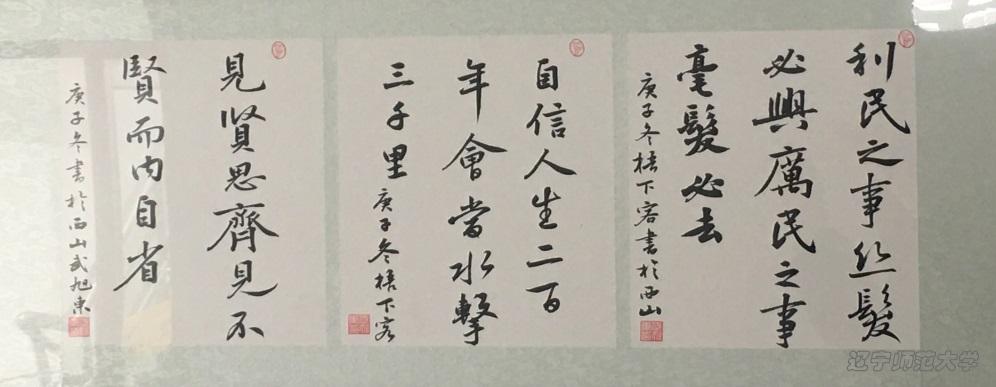 利民之事丝髮
必興厲民之事
毫髮必去
庚子冬梧下客書於西山
自信人生二百
年會當水擊
三千里
庚子冬梧下客
見賢思齊見不
賢而内自省
庚子冬書於西山武旭東
辽宁师范大学